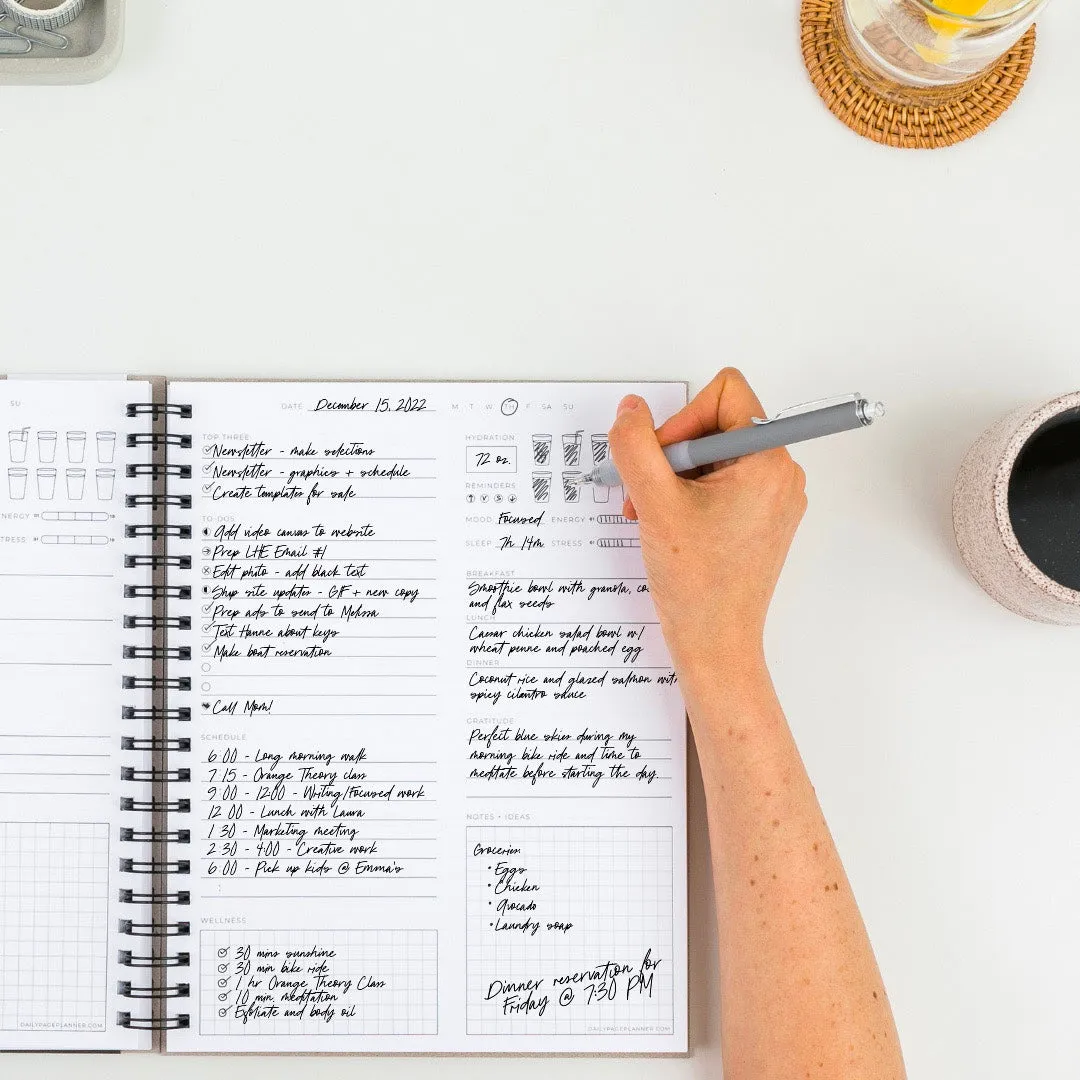 SU
ENERGY
STRESS
DAILYPAGEPLANNER.COM
DATE December 15, 2022 M T W TH F SA SU
TOP THREE
Newsletter - make selections
Newsletter - graphics + schedule
Create templates for sale
TO-DOS
Add video canvas to website
Prep LHE Email #1
Edit photo - add black text
Shop site updates - GIF + new copy
Prep ads to send to Melissa
Text Hanne about keys
Make boat reservation
Call Mom!
SCHEDULE
6:00 - Long morning walk
7:15 - Orange Theory class
9:00 - 12:00 - Writing/Focused work
12:00 - Lunch with Laura
1:30 - Marketing meeting
2:30 - 4:00 - Creative work
6:00 - Pick up kids @ Emma's
:
WELLNESS
30 mins sunshine
30 min bike ride
1 hr Orange Theory Class
10 min. meditation
Exfoliate and body oil
HYDRATION
72 oz.
REMINDERS
MOOD Focused ENERGY
SLEEP 7h 14m STRESS
BREAKFAST
Smoothie bowl with granola,
and flax seeds
LUNCH
Caesar chicken salad bowl w/
wheat penne and poached egg
DINNER
Coconut rice and glazed salmon with
spicy cilantro sauce
GRATITUDE
Perfect blue skies during my
morning bike ride and time to
meditate before starting the day.
NOTES + IDEAS
Groceries
• Eggs
• Chicken
• Avocado
• Laundry soap
Dinner reservation for
Friday @ 7:30 PM
DAILYPAGEPLANNER.COM